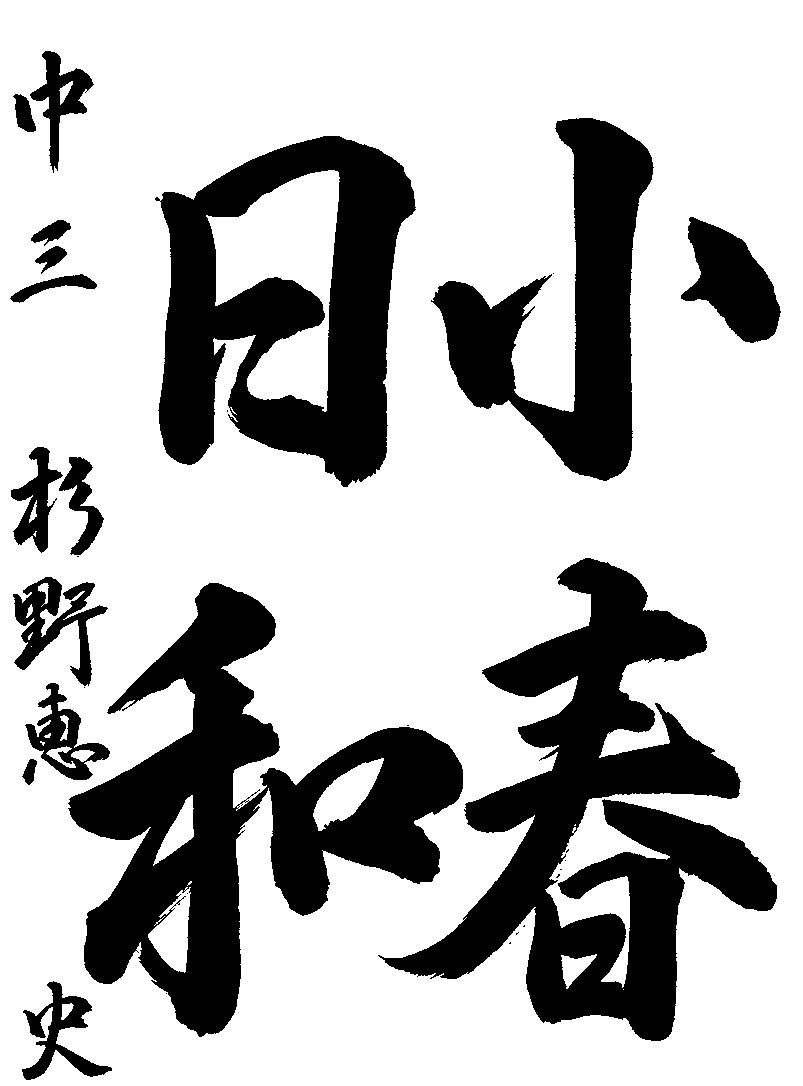 小春
日和
中三 杉野恵史